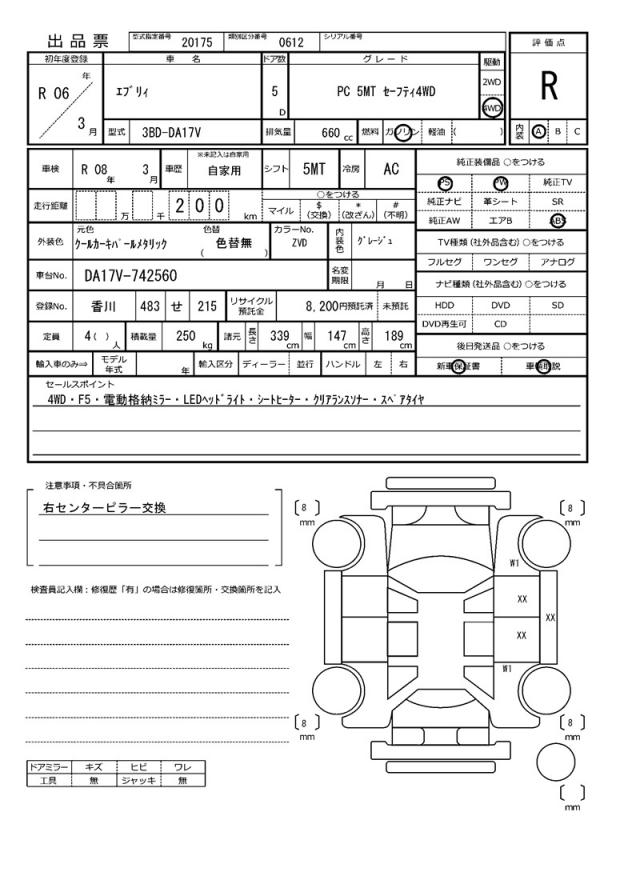 出品票
型式指定番号 20175 類別区分番号 0612 シリアル番号
初年度登録 車 名 ドア数 グレード 駆動 評価点
R 06 年 3 月 エブリィ 5 D PC 5MT セーフティ4WD 2WD 4WD R
型式 3BD-DA17V 排気量 660 cc 燃料 ガソリン 軽油 ( ) 内装 A B C
車検 R 08 年 3 月 車歴 ※未記入は自家用 自家用 シフト 5MT 冷房 AC 純正装備品 ○をつける
PS PW 純正TV
走行距離 万 千 2 0 0 km ○をつける マイル $ (交換) * (改ざん) # (不明) 純正ナビ 革シート SR
純正AW エアB ABS
外装色 元色 クールカーキパールメタリック 色替 ( 色替無 ) カラーNo. ZVD 内装色 グレージュ TV種類 (社外品含む) ○をつける
フルセグ ワンセグ アナログ
車台No. DA17V-742560 名変期限 月 日 ナビ種類 (社外品含む) ○をつける
登録No. 香川 483 せ 215 リサイクル預託金 8,200円預託済 未預託 HDD DVD SD
DVD再生可 CD
定員 4( ) 人 積載量 250 kg 諸元 長さ 339 cm 幅 147 cm 高さ 189 cm 後日発送品 ○をつける
輸入車のみ⇒ モデル年式 年 輸入区分 ディーラー 並行 ハンドル 左 右 新車保証書 車輌取説
セールスポイント
4WD・F5・電動格納ミラー・LEDヘッドライト・シートヒーター・クリアランスソナー・スペアタイヤ
注意事項・不具合箇所
右センターピラー交換
検査員記入欄：修復歴「有」の場合は修復箇所・交換箇所を記入
8 mm
8 mm
W1
XX
XX
XX
W1
8 mm
8 mm
mm
ドアミラー キズ ヒビ ワレ
工具 無 ジャッキ 無